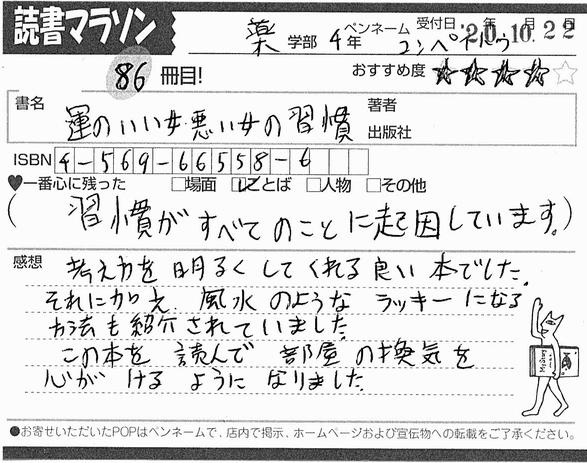 読書マラソン
薬 学部 4年 ペンネーム コンペイトウ 受付日 '20年10月22日
86 冊目! おすすめ度 ★★★★☆
書名 運のいい女悪い女の習慣 著者
出版社
ISBN 4-569-66558-6
♥一番心に残った □場面 ☑ことば □人物 □その他
(習慣がすべてのことに起因しています。)
感想 考え方を明るくしてくれる良い本でした。
それに加え、風水のようなラッキーになる
方法も紹介されていました。
この本を読んで部屋の換気を
心がけるようになりました。
●お寄せいただいたPOPはペンネームで、店内で掲示、ホームページおよび宣伝物への転載をご了承ください。